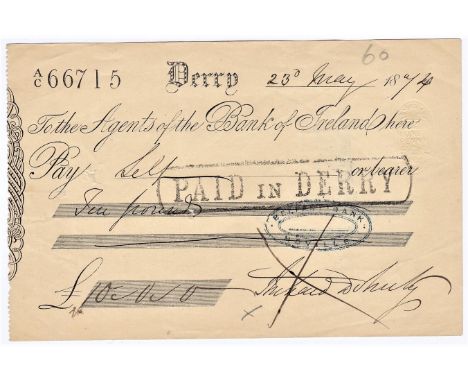 60
A/C 66715 Derry 23d May 1874
To the Agents of the Bank of Ireland here
Pay Self or bearer
PAID IN DERRY
Ten pounds
BANK
£10.0.0 Richard Doherty